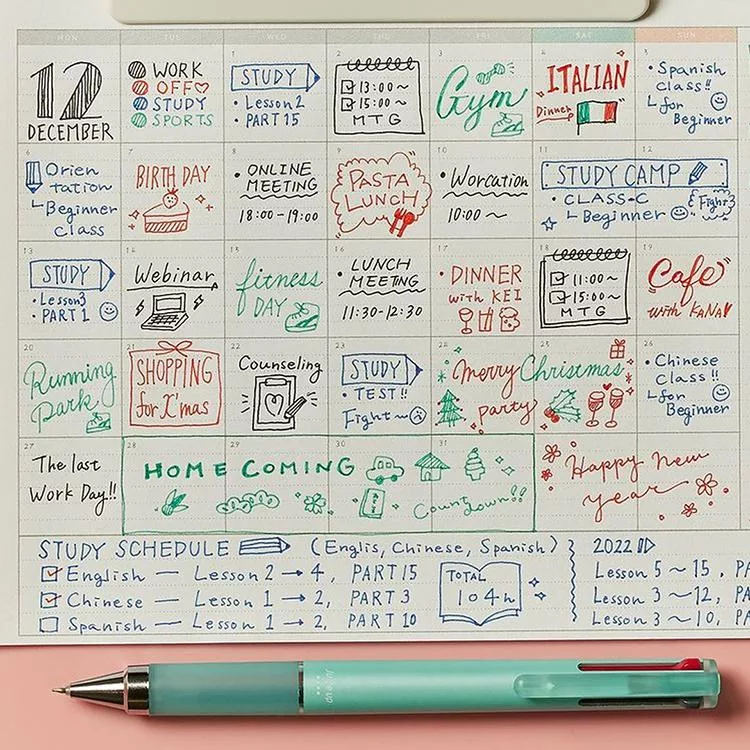 MON TUE WED THU FRI SAT SUN
12
DECEMBER
WORK
OFF
STUDY
SPORTS
1
STUDY
• Lesson 2
• PART 15
2
13:00~
15:00~
MTG
3
Gym
4
ITALIAN
Dinner
5
• Spanish
class!!
for
Beginner
6
Orien
tation
Beginner
class
7
BIRTHDAY
8
• ONLINE
MEETING
18:00-19:00
9
PASTA
LUNCH
10
• Worcation
10:00~
11
12
STUDY CAMP
• CLASS-C
Beginner
Fight
13
STUDY
• Lesson3
• PART 1
14
Webinar
15
fitness
DAY
16
• LUNCH
MEETING
11:30-12:30
17
• DINNER
with KEI
18
11:00~
15:00~
MTG
19
Cafe
with KANA
20
Running
Park
21
SHOPPING
for X'mas
22
Counseling
23
STUDY
• TEST!!
Fight~
24
25
Merry Christmas
party
26
• Chinese
class!!
for
Beginner
27
The last
Work Day!!
28
29
30
31
HOME COMING
Count down!!
Happy New
year
STUDY SCHEDULE (Englis, Chinese, Spanish)
English — Lesson 2 → 4, PART 15
Chinese — Lesson 1 → 2, PART 3
Spanish — Lesson 1 → 2, PART 10
TOTAL
104h
2022
Lesson 5~15, PA
Lesson 3~12, PA
Lesson 3~10, PA